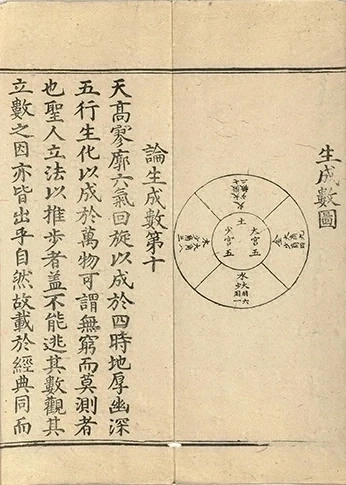 生成數圖
土
太宮五
少宮五
水
論生成數第十
天高寥廓六氣回旋以成於四時地厚幽深
五行生化以成於萬物可謂無窮而莫測者
也聖人立法以推步者蓋不能逃其數觀其
立數之因亦皆出乎自然故載於經典同而